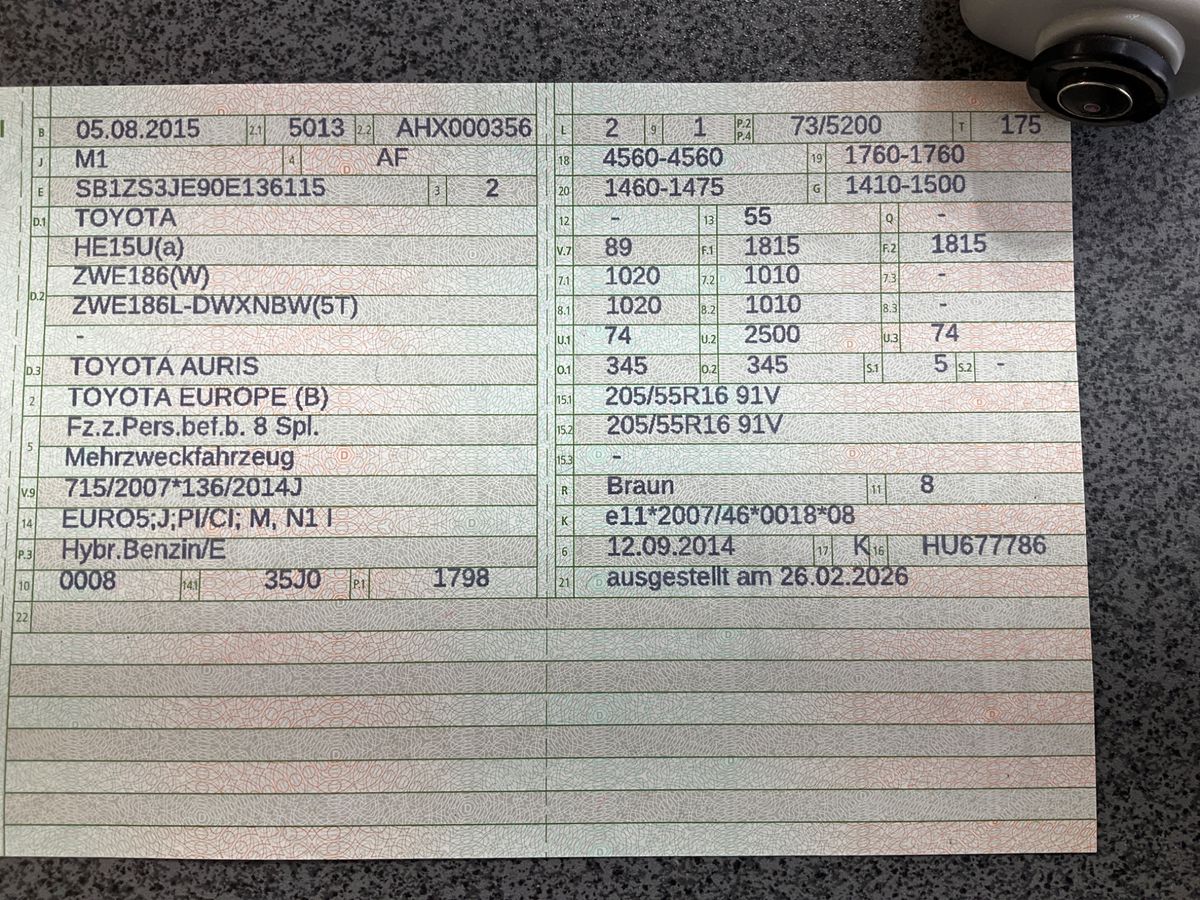 B 05.08.2015 2.1 5013 2.2 AHX000356
J M1 4 AF
E SB1ZS3JE90E136115 3 2
D.1 TOYOTA
HE15U(a)
D.2 ZWE186(W)
ZWE186L-DWXNBW(5T)
-
D.3 TOYOTA AURIS
2 TOYOTA EUROPE (B)
5 Fz.z.Pers.bef.b. 8 Spl.
Mehrzweckfahrzeug
V.9 715/2007*136/2014J
14 EURO5;J;PI/CI; M, N1 I
P.3 Hybr.Benzin/E
10 0008 14.1 35J0 P.1 1798
22
L 2 9 1 P.2 P.4 73/5200 T 175
18 4560-4560 19 1760-1760
20 1460-1475 G 1410-1500
12 - 13 55 Q -
V.7 89 F.1 1815 F.2 1815
7.1 1020 7.2 1010 7.3 -
8.1 1020 8.2 1010 8.3 -
U.1 74 U.2 2500 U.3 74
O.1 345 O.2 345 S.1 5 S.2 -
15.1 205/55R16 91V
15.2 205/55R16 91V
15.3 -
R Braun 11 8
K e11*2007/46*0018*08
6 12.09.2014 17 K 16 HU677786
21 ausgestellt am 26.02.2026